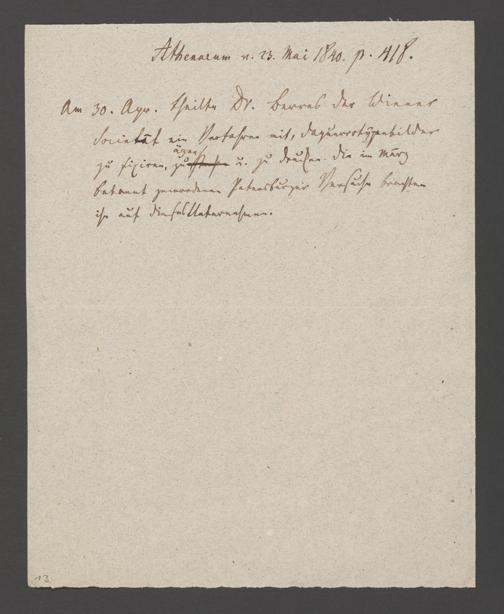 Athenaeum v. 23. Mai 1840. p. 418.
Am 30. Apr. theilte Dr. Berres der Wiener
Societät ein Verfahren mit, Daguerrotypenbilder
ätzen
zu fixiren, zu u. zu drucken. Die im März
bekannt gewordenen Petersburger Versuche brachten
ihn auf dieses Unternehmen.
13